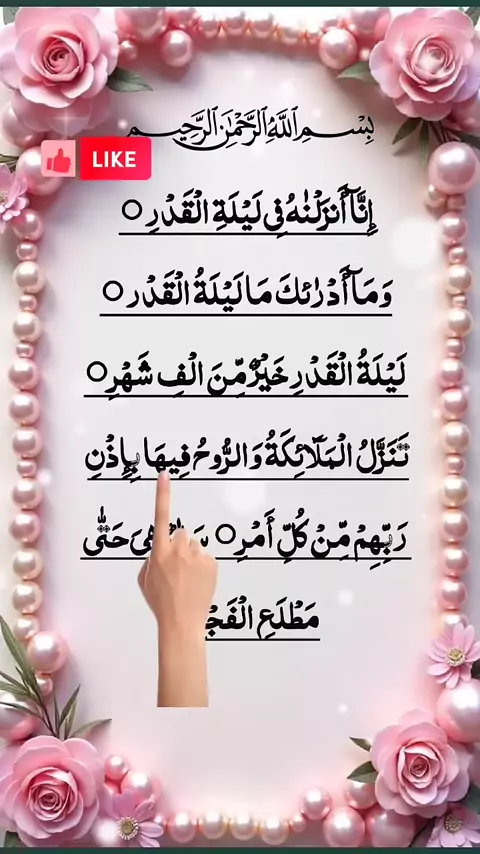 بِسْمِ اللَّهِ الرَّحْمَٰنِ الرَّحِيمِ
LIKE
إِنَّآ أَنزَلْنٰهُ فِى لَيْلَةِ الْقَدْرِ ○
وَمَآ أَدْرٰىٰكَ مَا لَيْلَةُ الْقَدْر ○
لَيْلَةُ الْقَدْرِ خَيْرٌ مِّنَ الْفِ شَهْرٍ ○
تَنَزَّلُ الْمَلَآئِكَةُ وَالرُّوحُ فِيهَا بِإِذْنِ
رَبِّهِمْ مِّنْ كُلِّ أَمْرٍ ○ حَتّٰى
مَطْلَعِ